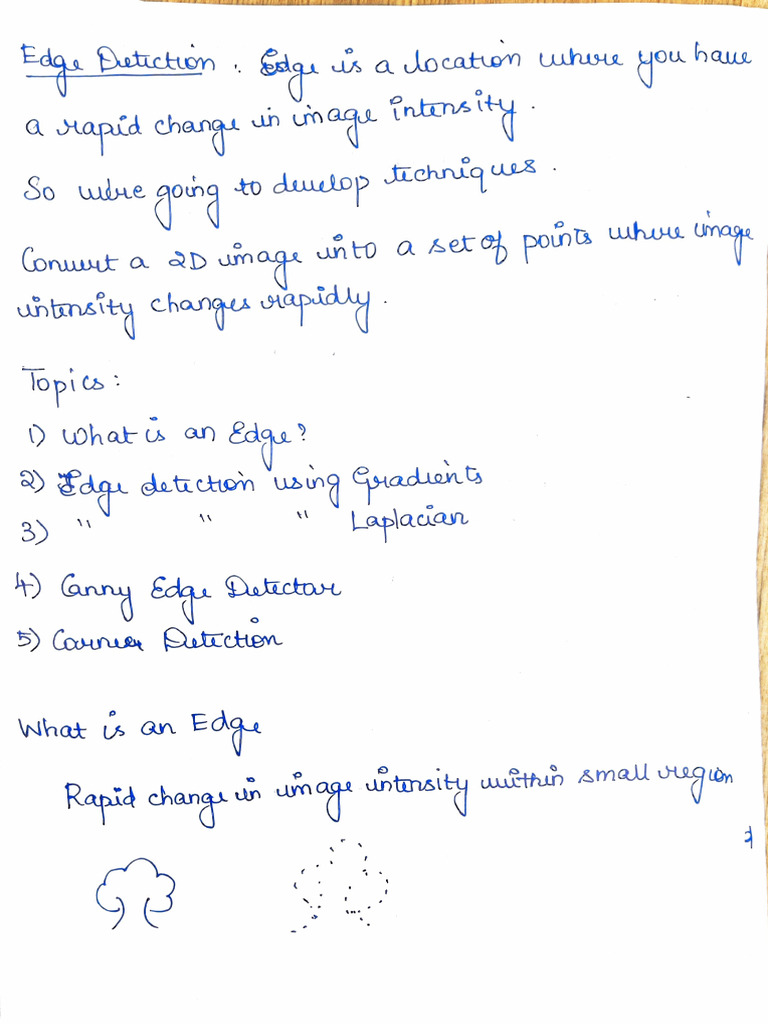 Edge Detection : Edge is a location where you have
a rapid change in image intensity.
So we're going to develop techniques.
Convert a 2D image into a set of points where image
intensity changes rapidly.
Topics:
1) What is an Edge?
2) Edge detection using Gradients
3) " " " Laplacian
4) Canny Edge Detector
5) Corner Detection
What is an Edge
Rapid change in image intensity within small region